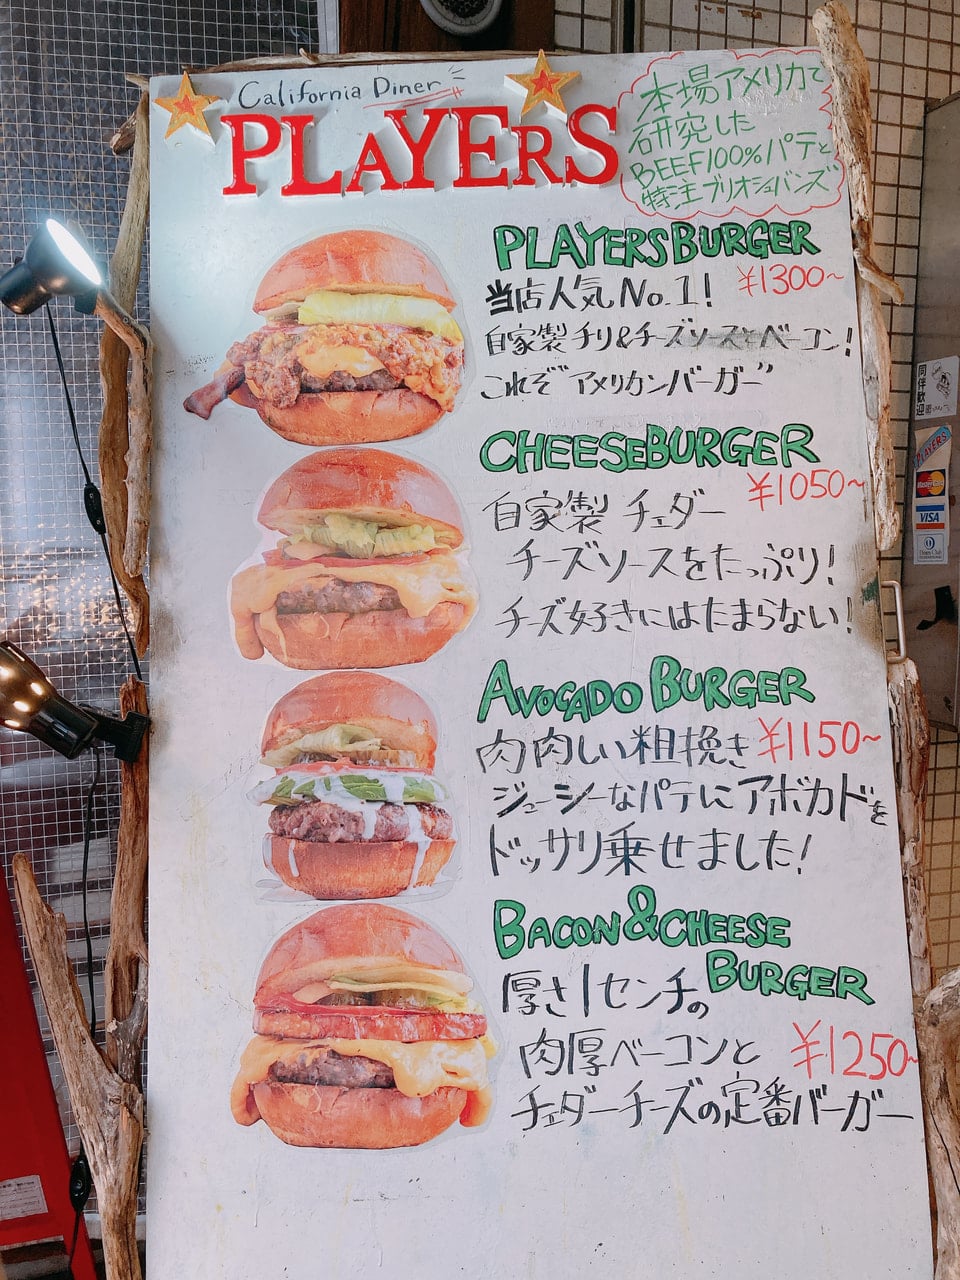 California Diner
PLAYERS
本場アメリカで
研究した
BEEF100%パテと
特注ブリオッシュバンズ
PLAYERS BURGER
¥1300~
当店人気No.1!
自家製チリ&チーズソースとベーコン!
これぞ"アメリカンバーガー"
CHEESEBURGER
¥1050~
自家製 チェダー
チーズソースをたっぷり!
チーズ好きにはたまらない!
AVOCADO BURGER
肉肉しい粗挽き
¥1150~
ジューシーなパテにアボカドを
ドッサリ乗せました!
BACON&CHEESE
BURGER
厚さ1センチの
肉厚ベーコンと
¥1250~
チェダーチーズの定番バーガー
同伴歓迎
PLAYERS
MasterCard
VISA
Diners Club